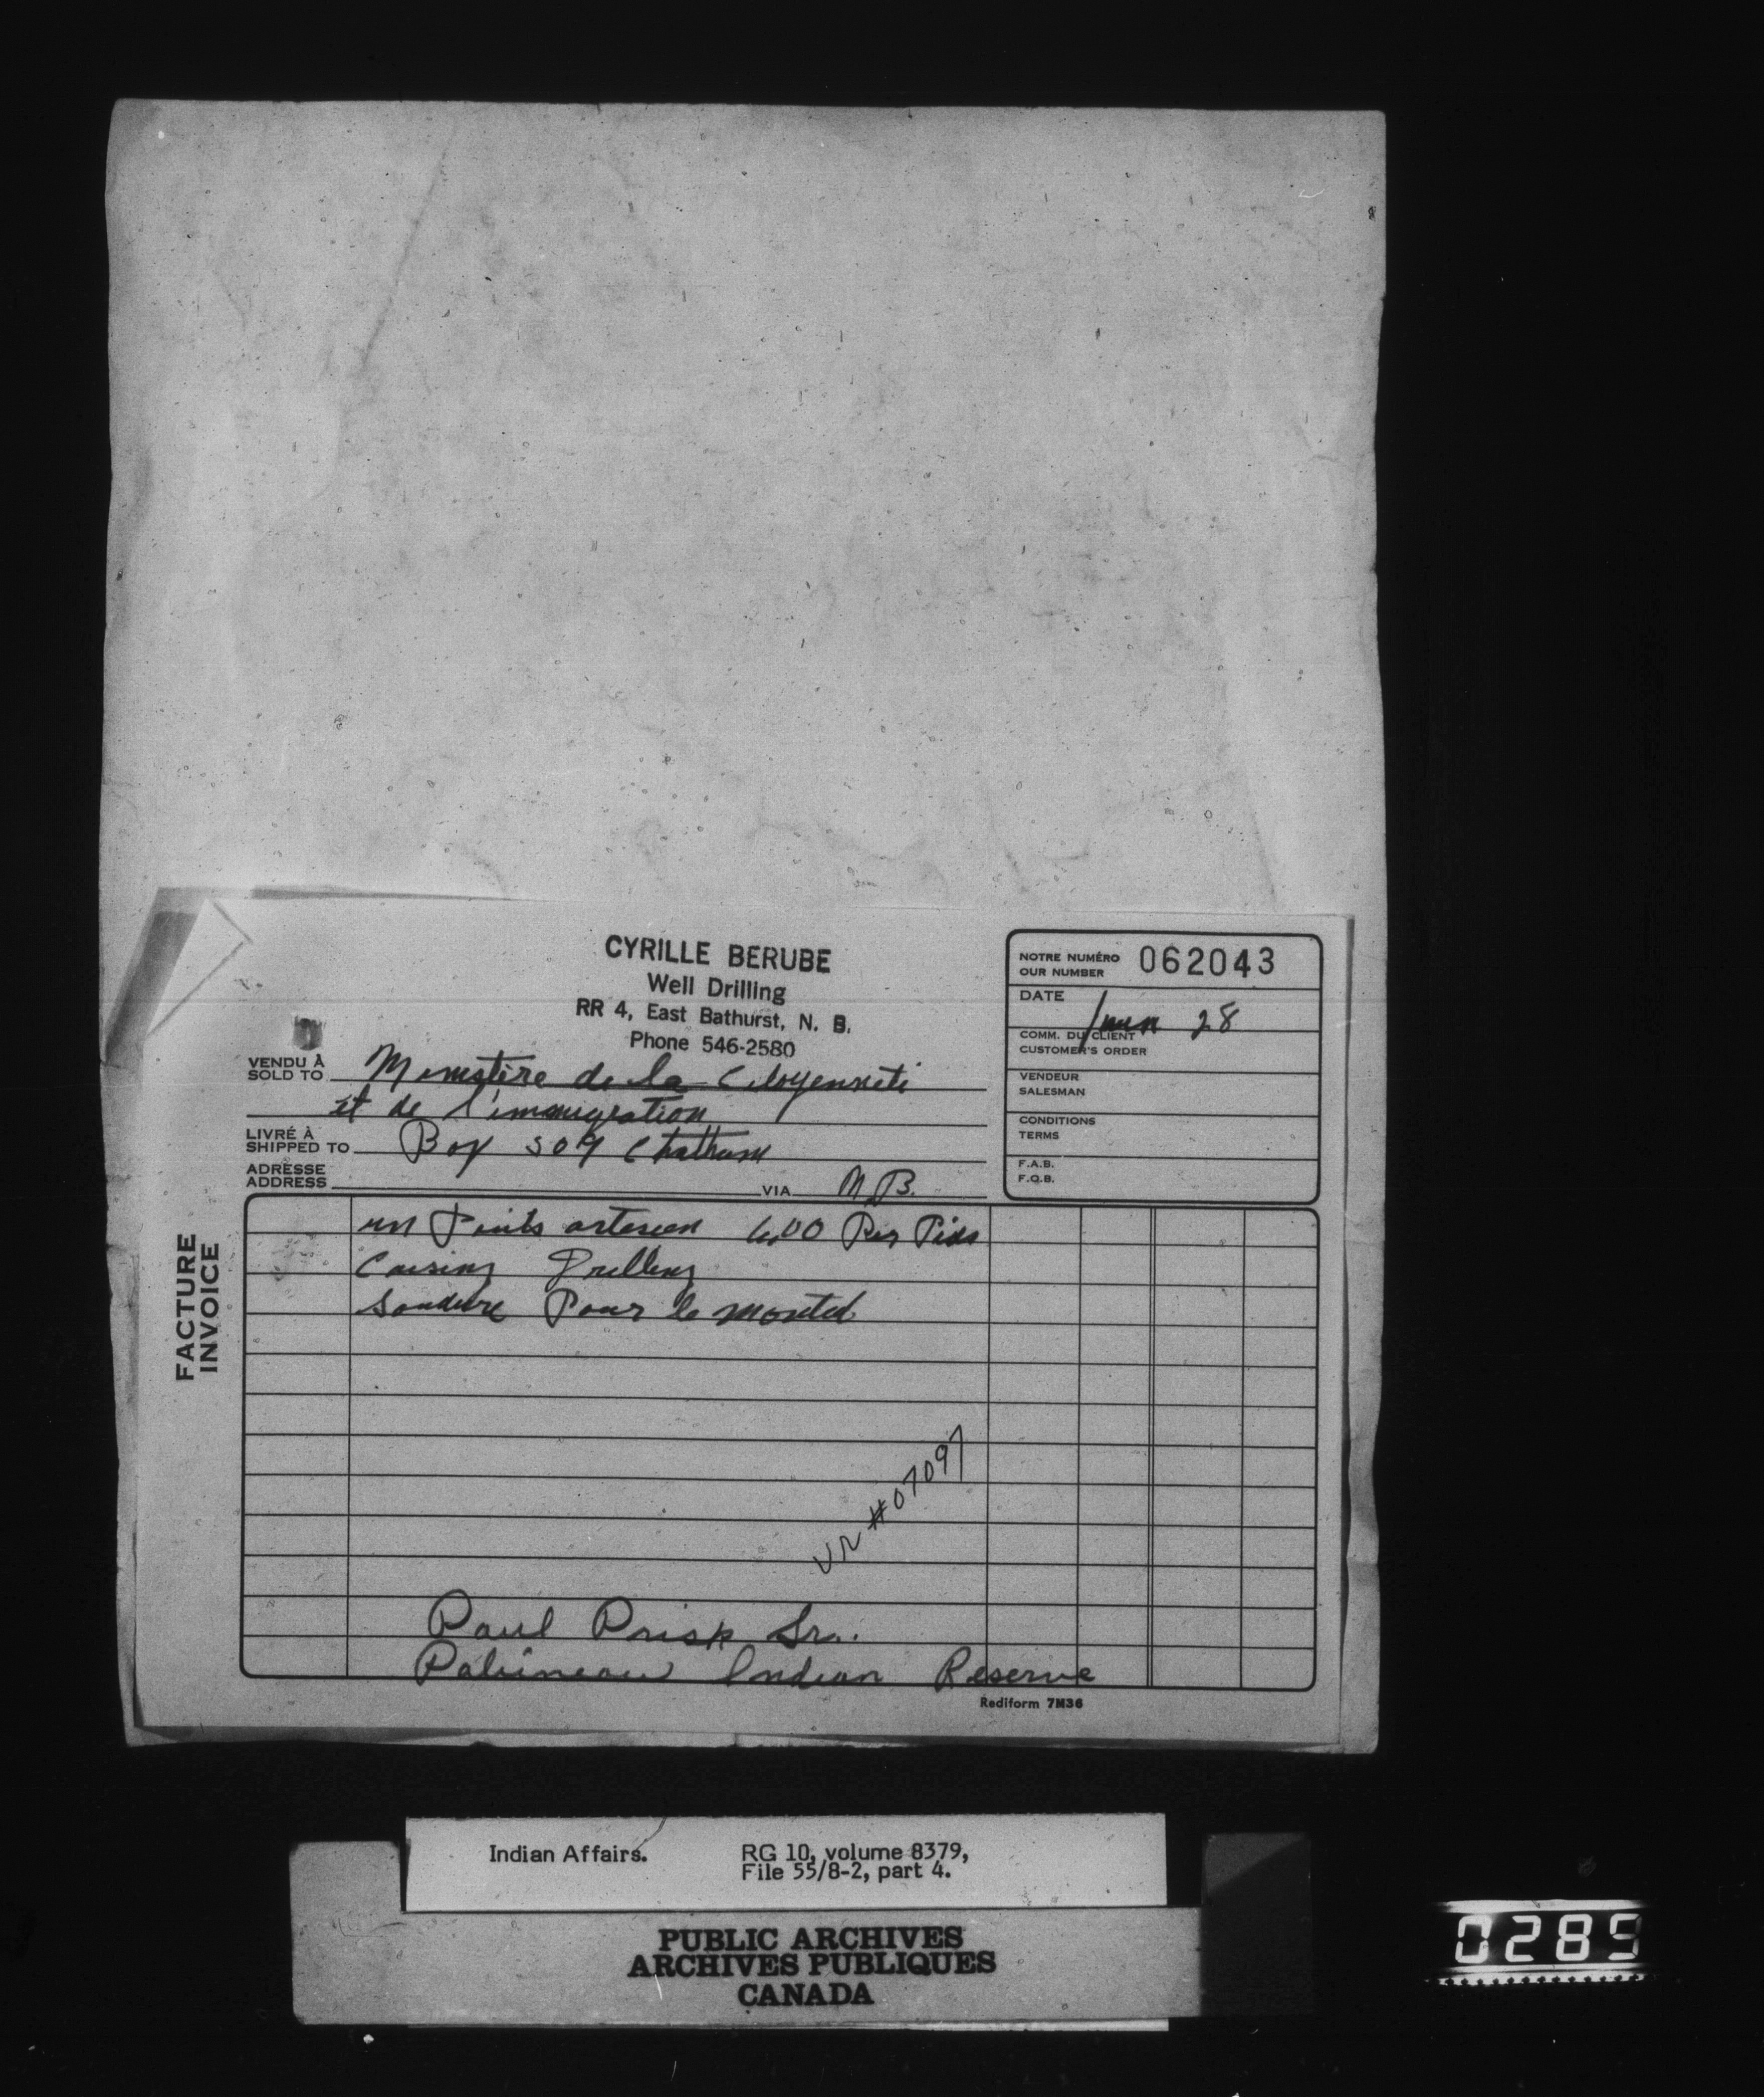 CYRILLE BERUBE
Well Drilling
RR 4, East Bathurst, N. B.
Phone 546-2580
NOTRE NUMÉRO
OUR NUMBER
062043
DATE
28
COMM. DU CLIENT
CUSTOMER'S ORDER
VENDEUR
SALESMAN
CONDITIONS
TERMS
F.A.B.
F.O.B.
VENDU À
SOLD TO
Ministère de la Citoyenneté
et de l'immigration
LIVRÉ À
SHIPPED TO
Box 509 Chatham
ADRESSE
ADDRESS
VIA
N.B.
FACTURE
INVOICE
un Puits artesien 4,00 Per Pieds
Caising Drilling
Soudure Pour le
VR #07097
Paul Prisk Sr.
Pabineau Indian Reserve
Rediform 7M36
Indian Affairs.
RG 10, volume 8379,
File 55/8-2, part 4.
PUBLIC ARCHIVES
ARCHIVES PUBLIQUES
CANADA
0285